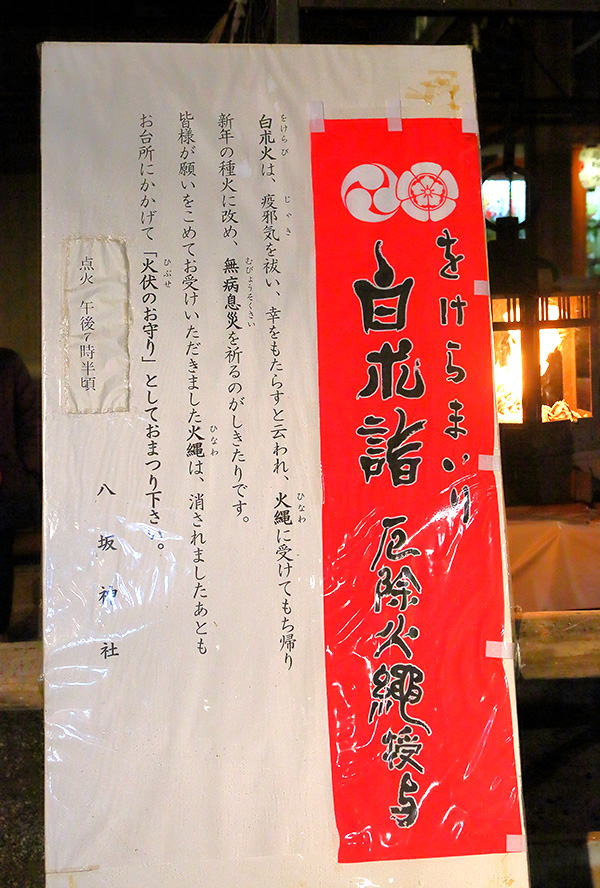 をけらまいり
白朮詣 厄除火縄授与
をけらび じゃき
白朮火は、疫邪気を祓い、幸をもたらすと云われ、火縄に受けてもち帰り
ひなわ
むびょうそくさい
新年の種火に改め、無病息災を祈るのがしきたりです。
ひなわ
皆様が願いをこめてお受けいただきました火縄は、消されましたあとも
ひぶせ
お台所にかかげて「火伏のお守り」としておまつり下さい。
点火 午後7時半頃
八坂神社